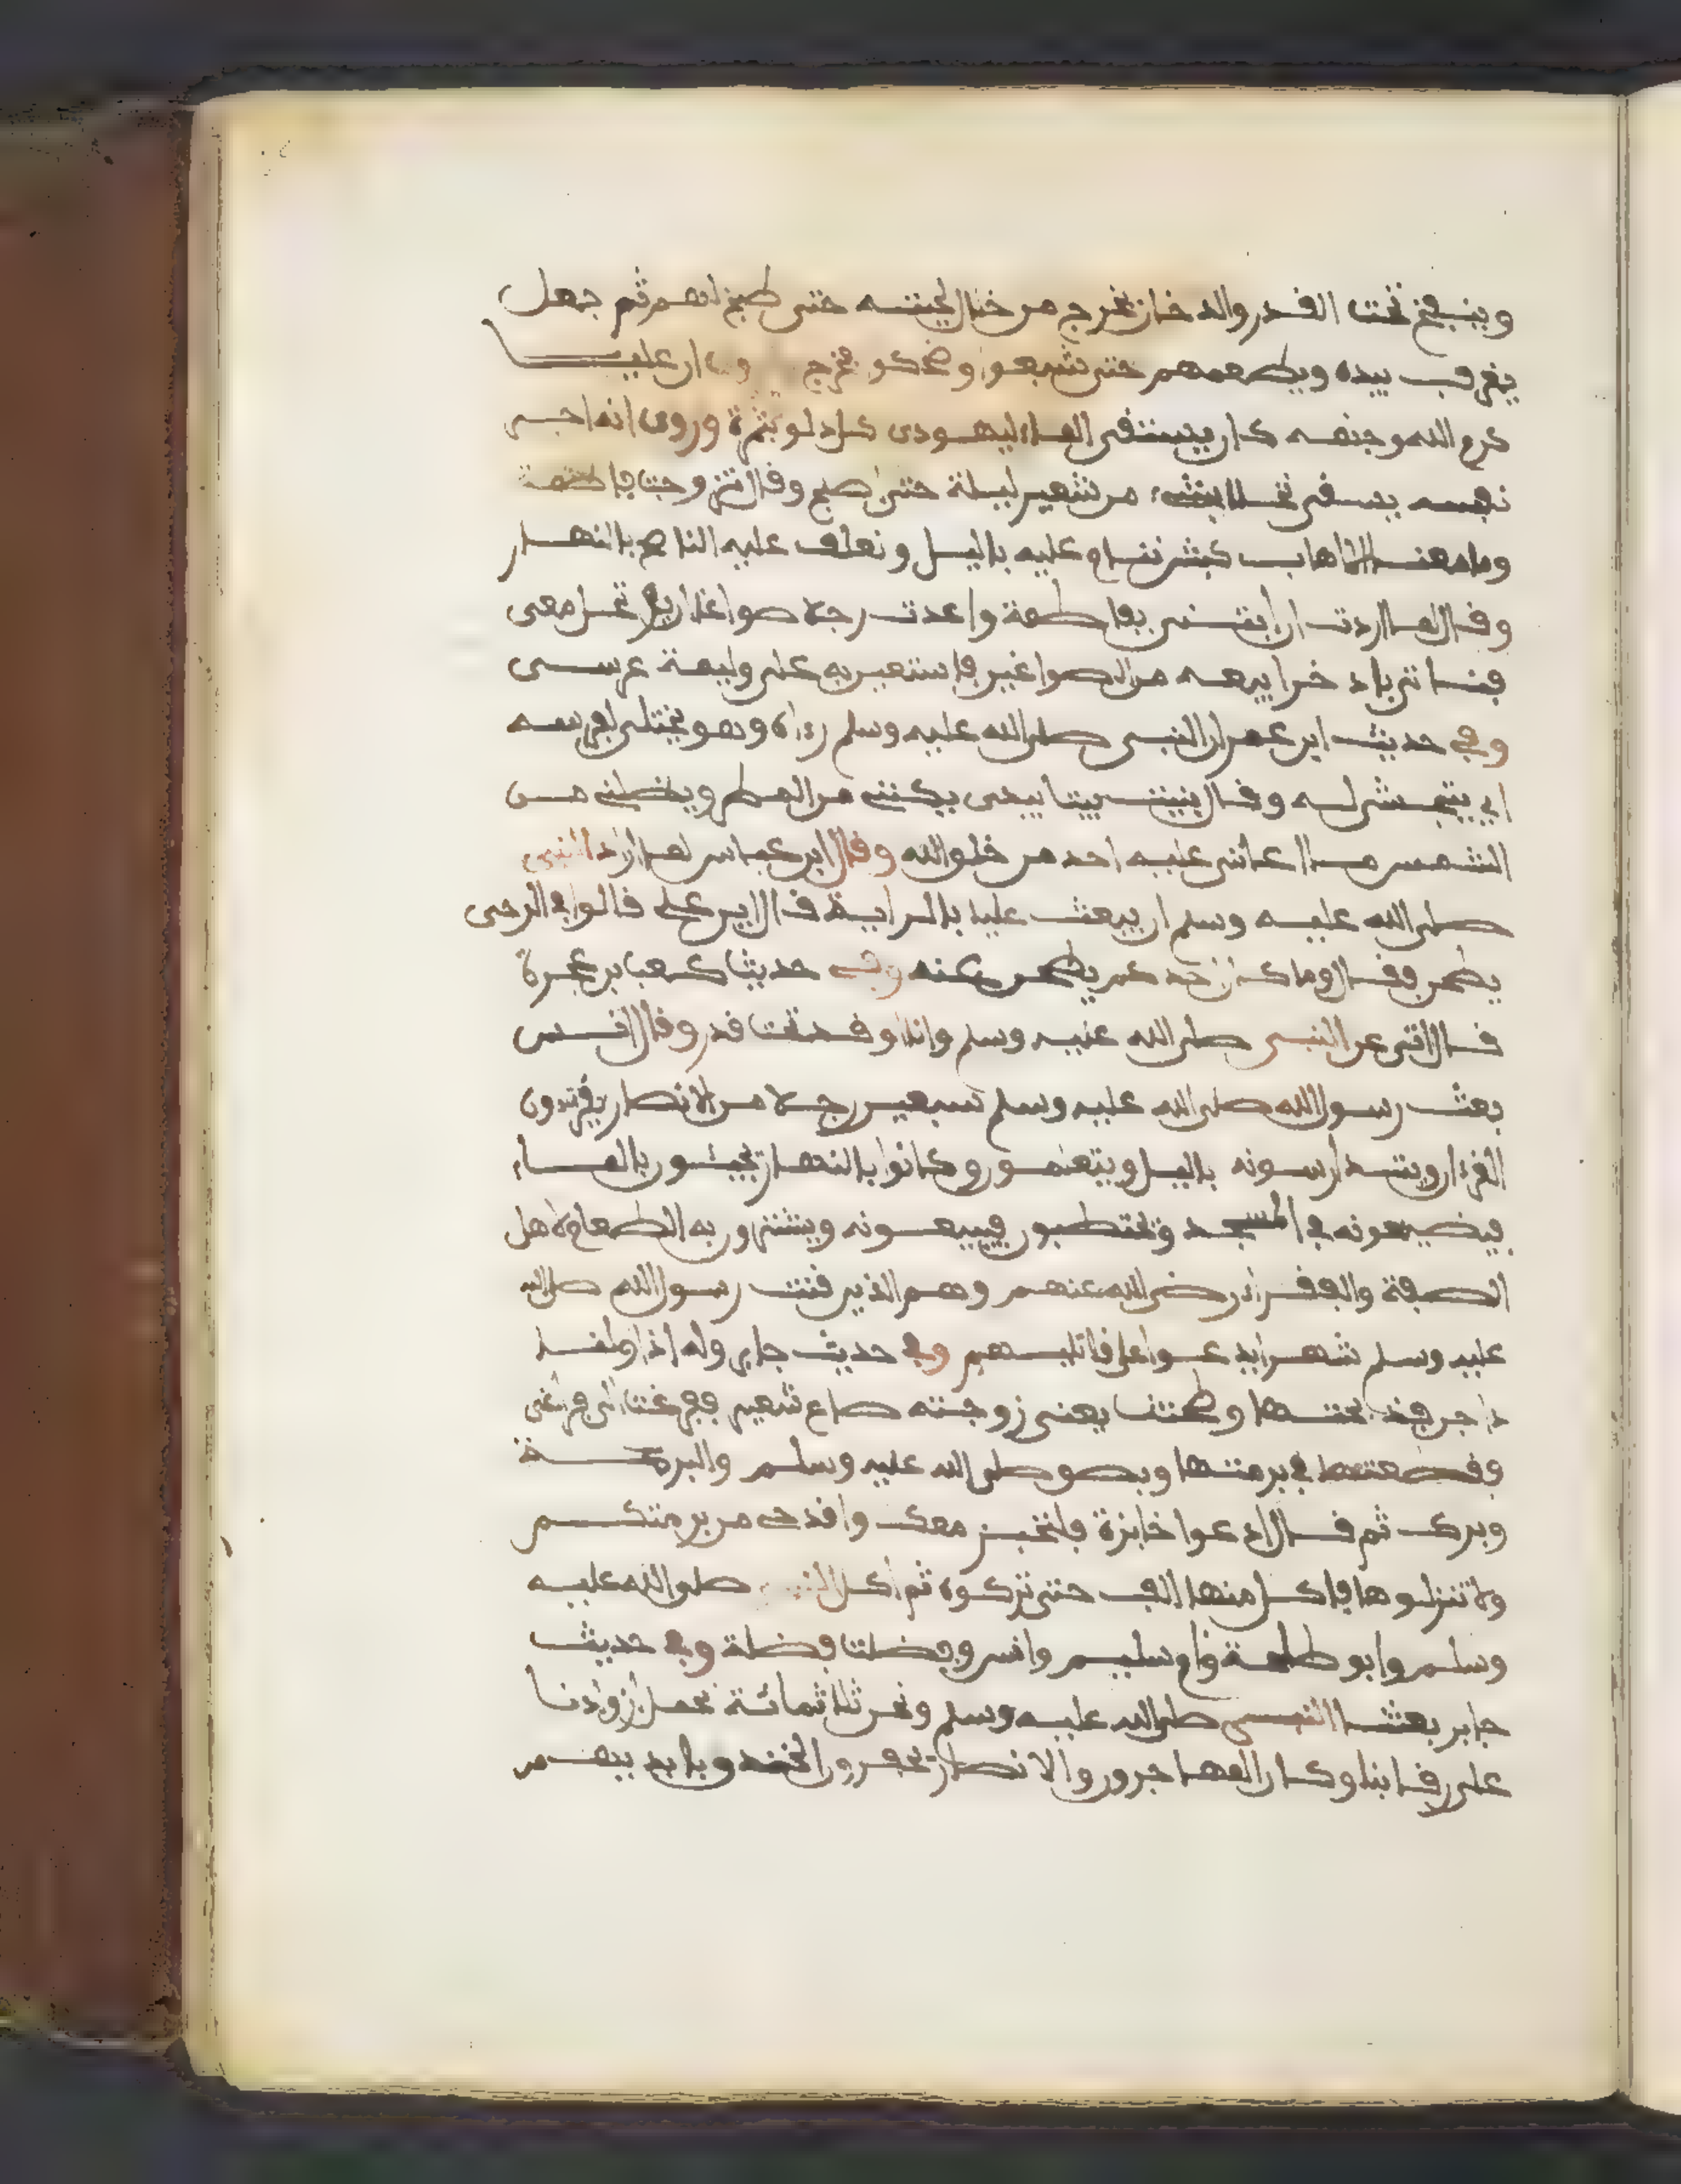 وينفخ تحت القدر والدخان يخرج من خلال لحيته حتى طبخ لهم ثم جعل
يغرف بيده ويطعمهم حتى شبعوا وضحكو فخرج وكان عليا
كرم الله وجهه كان يستقى الماء ليهودى كل دلو بثمرة وروى انه اجر
نفسه يسقى نخلا بشىء من شعير ليلة حتى اصبح وقال تزوجت فاطمة
وما معنا الا اهاب كبش ننام عليه باليل ونعلف عليه الناضح بالنهار
وقال لما اردت ان ابتنى بفاطمة واعدت رجلا صواغا ان يرتحل معى
فناتى باذخر ابيعه من الصواغين فاستعين به على وليمة عرسى
وفي حديث ابن عمر ان النبي صلى الله عليه وسلم رءاه وهو يختلى لفرسه
اي يتحشش له وقال بنيت بيتا بيدى يكننى من المطر ويظلنى من
الشمس ما اعاننى عليه احد من خلق الله وقال ابن عباس لما اراد النبي
صلى الله عليه وسلم ان يبعث عليا بالراية قال اين علي قالوا في الرحى
يطحن فقال وما كان احدكم يطحن عنه وفي حديث كعب بن عجرة
قال اتى عن النبي صلى الله عليه وسلم وانا اوقد تحت قدر وقال انس
بعث رسول الله صلى الله عليه وسلم سبعين رجلا من الانصار يقرءون
القرءان ويتدارسونه باليل ويتعلمون وكانوا بالنهار يجيئون بالماء
فيضعونه في المسجد ويحتطبون فيبيعونه ويشترون به الطعام لاهل
الصفة والفقراء رضى الله عنهم وهم الذين قنت رسول الله صلى الله
عليه وسلم شهرا يدعوا على قاتليهم وفي حديث جابر وله اذا وطئنا
داجن فذبحتها وطحنت يعنى زوجته صاع شعير ففرغت الى فراغى
وقطعتها في برمتها وبصق صلى الله عليه وسلم والبرمة
وبرك ثم قال ادعوا خابزة فلتخبز معك واقدحى من برمتكم
ولا تنزلوها فاكل منها الف حتى تركوه ثم اكل النبي صلى الله عليه
وسلم وابو طلحة وام سليم وانس وفضلت فضلة وفي حديث
جابر بعثنا النبي صلى الله عليه وسلم ونحن ثلاثمائة نحمل ازوادنا
على رقابنا وكان المهاجرون والانصار يحفرون الخندق بايديهم